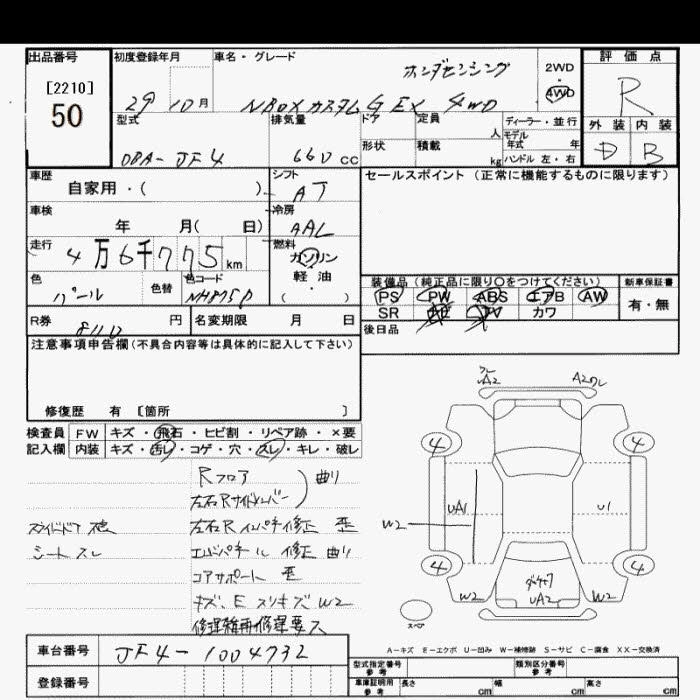 出品番号
[2210]
50
初度登録年月
29 10 月
車名・グレード
ホンダセンシング
NBOXカスタム G EX 4WD
2WD
4WD
評価点
R
外装 内装
D B
型式
DBA-JF4
排気量
660 cc
ドア
定員
人
形状
積載
kg
ディーラー・並行
モデル
年式 年
ハンドル 左・右
車歴
自家用・( )
シフト
AT
セールスポイント (正常に機能するものに限ります)
車検
年 月( 日)
冷房
AAC
走行
4万6千775km
燃料
ガソリン
軽油
( )
色
パール
色替
色コード
NH875P
装備品 (純正品に限り〇をつけてください)
PS PW ABS エアB AW
SR TV カワ
新車保証書
有・無
R券
8110 円
名変期限 月 日
後日品
注意事項申告欄(不具合内容等は具体的に記入して下さい)
修復歴 有 [箇所 ]
検査員
記入欄
FW キズ・飛石・ヒビ割・リペア跡・×要
内装 キズ・汚レ・コゲ・穴・スレ・キレ・破レ
Rフロア
曲り
左右Rサイドメンバー
スライドドア
左右Rインパネ修正 歪
シート スレ
エンドパネル 修正 曲り
コアサポート 歪
キズ、E スリキズ W2
修理箇所修理要ス
UA2
A2
4 4
UA1
U1
W2
4 4
W2
UA2
W2
スペア
A-キズ E-エクボ U-凹み W-補修跡 S-サビ C-腐食 XX-交換済
車台番号
JF4-1004732
登録番号
型式指定番号
参考
類別区分番号
参考
車庫証明用
参考
長さ cm
幅 cm
高さ cm